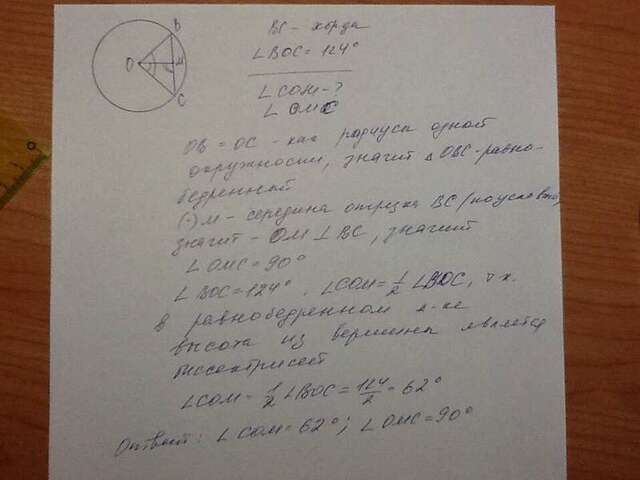 B
O
M
C
BC - хорда
∠BOC = 124°
∠COM - ?
∠OMC
OB = OC - как радиусы одной
окружности, значит △OBC - равно-
бедренный
(·) M - середина отрезка BC (по условию),
значит - OM ⊥ BC, значит
∠OMC = 90°
∠BOC = 124°. ∠COM = 1/2 ∠BOC, т.к.
в равнобедренном △-ке
высота из вершины является
биссектрисой
∠COM = 1/2 ∠BOC = 124/2 = 62°
Ответ: ∠COM = 62°; ∠OMC = 90°